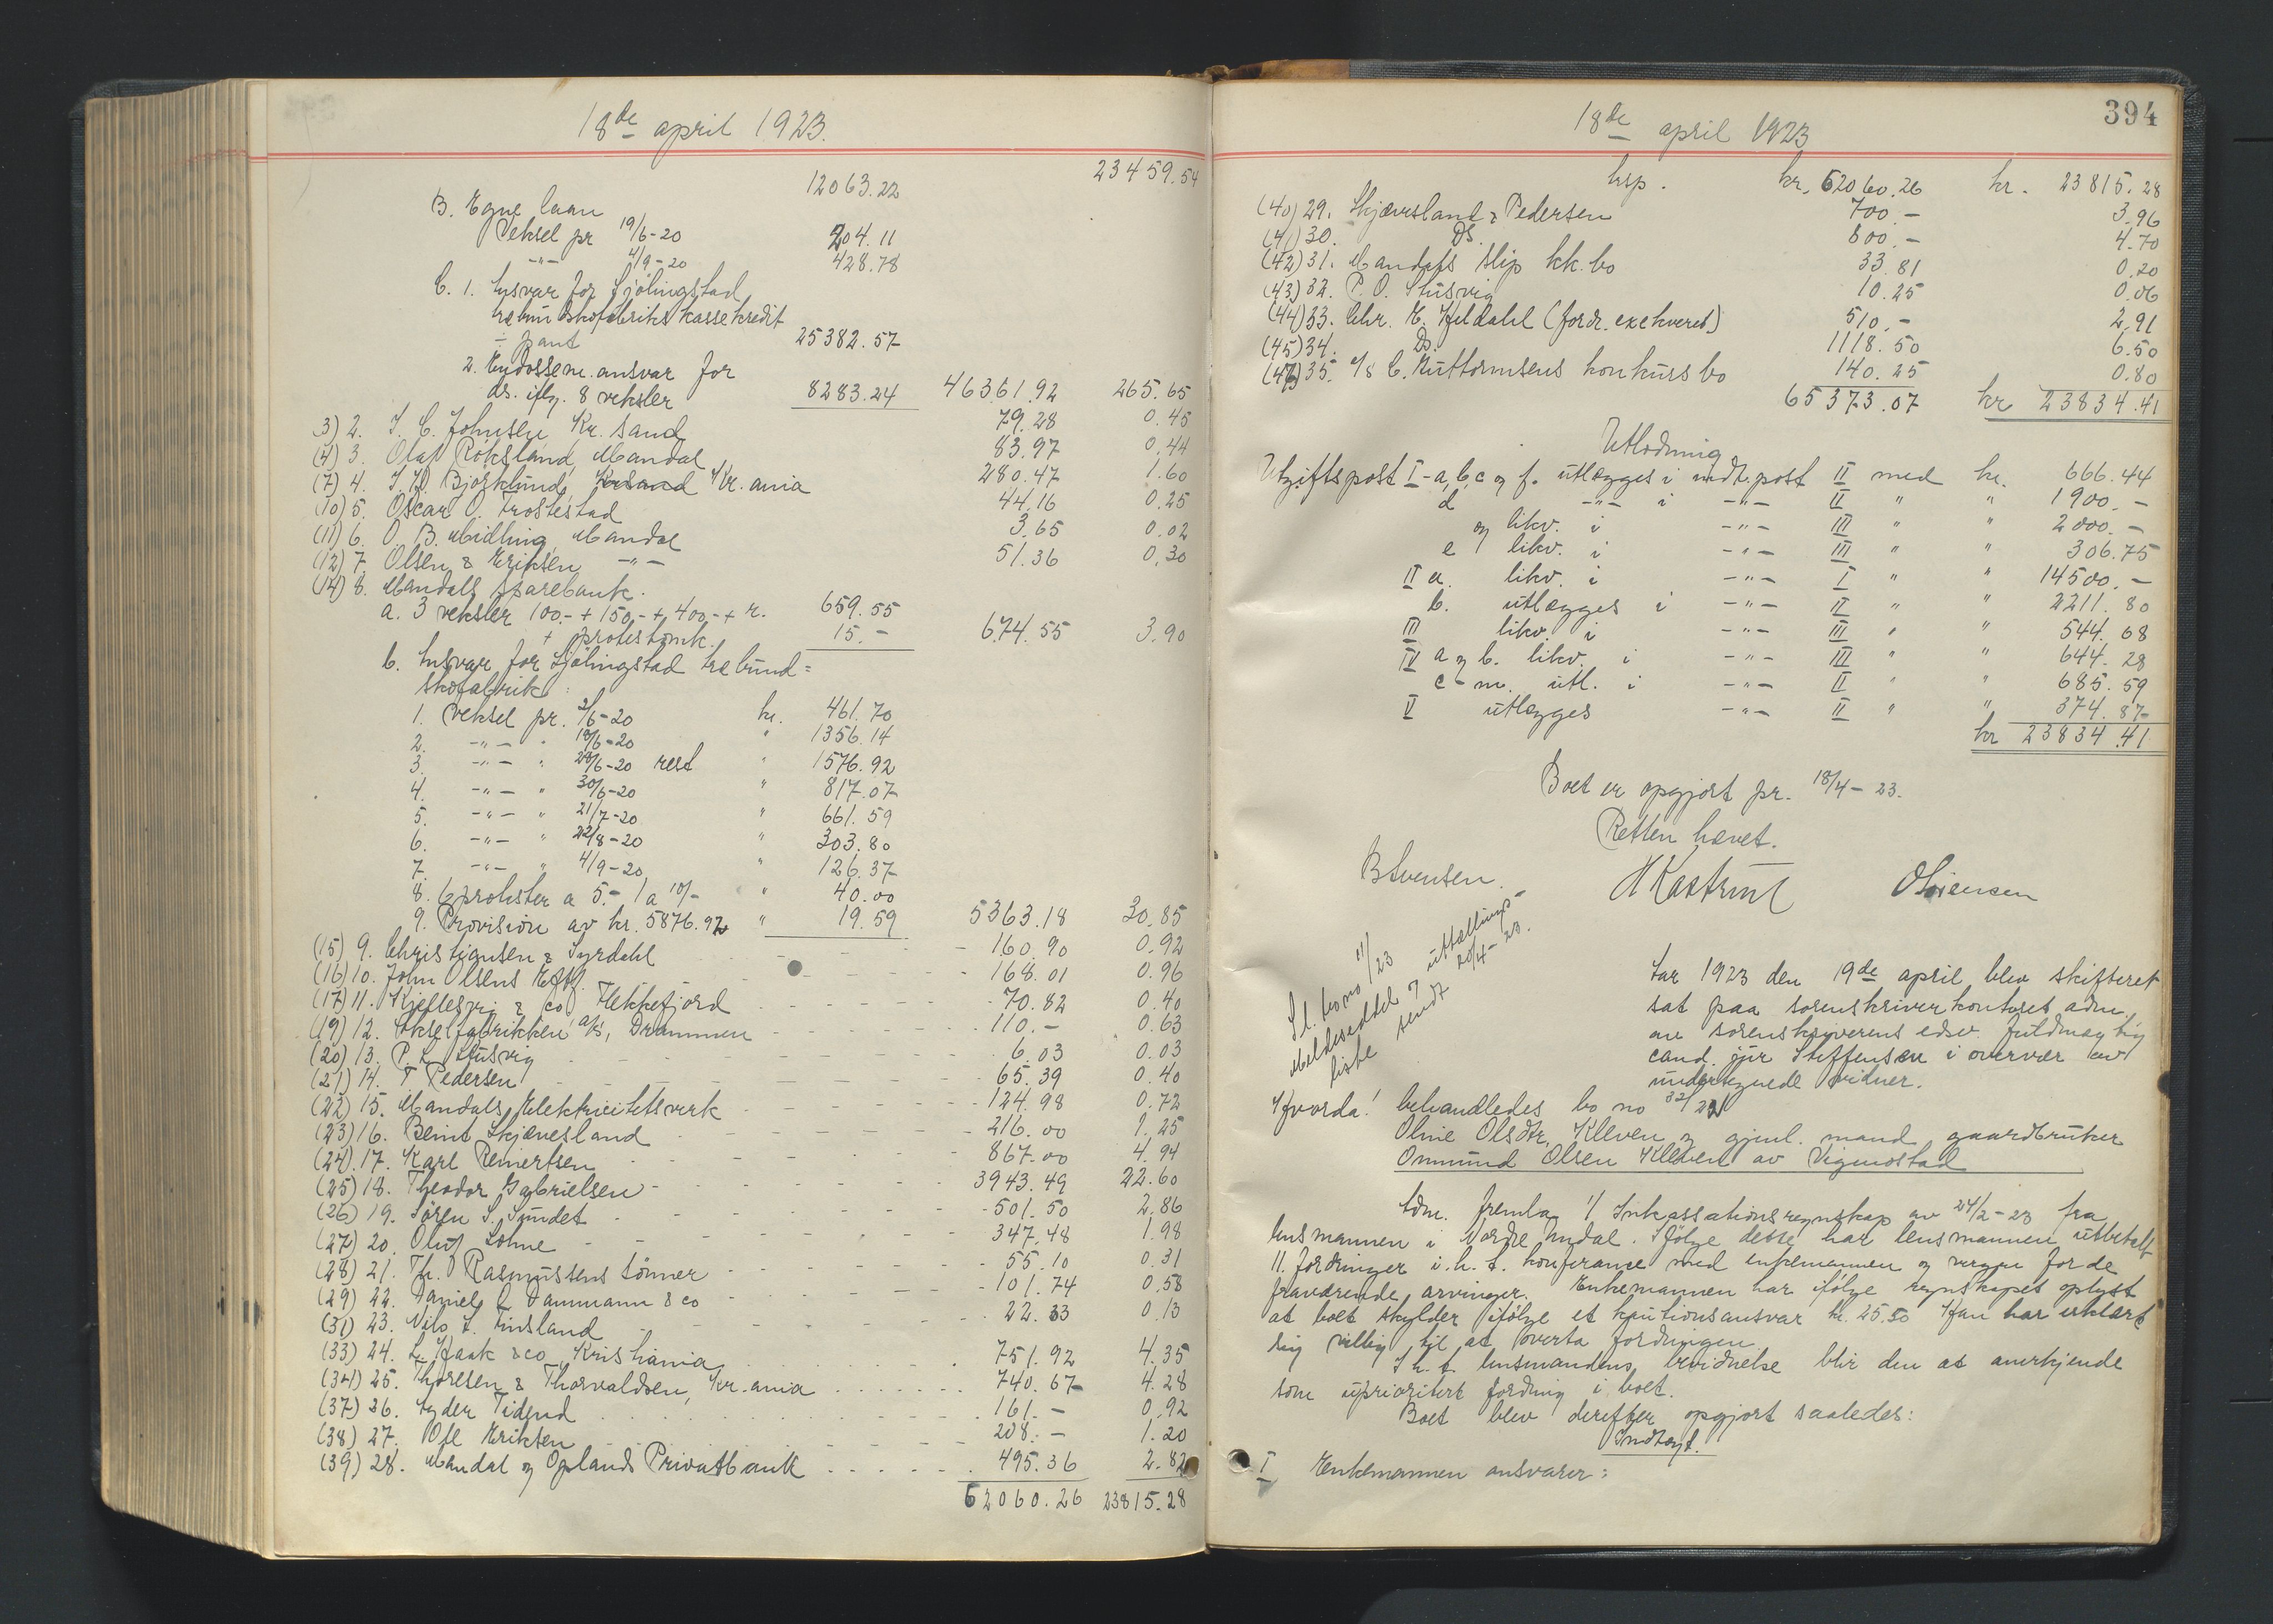 18de april 1923.
12063.22 23459.54
B. Egne laan
Veksel pr 19/6-20 204.11
-"- 4/9-20 428.78
C. 1. Ansvar for Sjölingstad
trebundskofabriks kassekredit
÷ pant 25382.57
2. Endossem. ansvar for
ds. iflg. 8 veksler 8283.24 46361.92 265.65
3) 2. J. C. Johnsen Kr. sand 79.28 0.45
(4) 3. Olaf Röksland, Mandal 83.97 0.44
(7) 4. J. H. Bjorklund, Krsand Kr. ania 280.47 1.60
(10) 5. Oscar O. Frostestad 44.16 0.25
(11) 6. O. B. Midling Mandal 3.65 0.02
(12) 7. Olsen & Eriksen -"- 51.36 0.30
(14) 8. Mandals sparebank.
a. 3 veksler 100.- + 150.- + 400.- + r. 659.55
+ protestomk. 15.- 674.55 3.90
b. Ansvar for Sjölingstad trebund=
skofabrik:
1. Veksel pr. 2/6-20 kr. 461.70
2. -"- " 18/6-20 " 1356.14
3. -"- " 28/6-20 rest " 1576.92
4. -"- " 30/6-20 " 817.07
5. -"- " 21/7-20 " 661.59
6. -"- " 22/8-20 " 303.80
7. -"- " 4/9-20 " 126.37
8. 6 protester a 5.- 1 a 10/- " 40.00
9. Provision av kr. 5876.92 " 19.59 5363.18 30.85
(15) 9. Christiansen & Syrdahl 160.90 0.92
(16) 10. John Olsens Eftf. 168.01 0.96
(17) 11. Kjellesvig & co, Flekkefjord 70.82 0.40
(19) 12. Akselfabrikken a/s, Drammen 110.- 0.63
(20) 13. P. L. Stusvig 6.03 0.03
(21) 14. T Pedersen 65.39 0.40
(22) 15. Mandals Elektricitetsverk 124.98 0.72
(23) 16. Bernt Skjævesland 216.00 1.25
(24) 17. Karl Reinertsen 867.00 4.94
(25) 18. Theodor Gabrielsen 3943.49 22.60
(26) 19. Sören S. Sundet 501.50 2.86
(27) 20. Oluf Lohne 347.48 1.98
(28) 21. Th. Rasmussens Sönner 55.10 0.31
(29) 22. Daniel C Dammann & co 101.74 0.58
(31) 23. Nils T. Finsland 22.33 0.13
(33) 24. L. Haak & co Kristiania 751.92 4.35
(34) 25. Thoresen & Thorvaldsen, Kr.ania 740.67 4.28
(37) 26. Agder Tidend 161.- 0.92
(38) 27. Ole Eriksen 208.- 1.20
(39) 28. Mandal og Oplands Privatbank 495.36 2.82
62060.26 23815.28
394
18de april 1923
trsp. kr. 62060.26 kr. 23815.28
(40) 29. Skjævesland & Pedersen 700.- 3.96
(41) 30. Ds. 800.- 4.70
(42) 31. Mandals Slip kk. bo 33.81 0.20
(43) 32. P. O. Stusvig 10.25 0.06
(44) 33. Chr. E. Heldahl (fordr. exekveret) 510.- 2.91
(45) 34. Ds. 1118.50 6.50
(47) 35. a/s C. Guttormsens konkurs bo 140.25 0.80
65373.07 kr 23834.41
Utlodning
Utgiftspost I-a,b,c og f. utlægges i indt. post II med kr. 666.44
d -"- i -"- II " " 1900.-
og likv. i -"- III " " 2000.-
e likv. i -"- III " " 306.75
II a. likv. i -"- I " " 14500.-
b. utlægges i -"- II " " 2211.80
III likv. i -"- III " " 544.68
IV a og b. likv. i -"- III " " 644.28
c-m. utl. i -"- II " " 685.59
V utlægges -"- II " " 374.87
kr 23834.41
Boet er opgjort pr. 18/4-23.
Retten hævet.
B Svensen. H Kastrup
Sl. bo no 11/23
Meldeseddel og uttællings-
liste sendt 20/4-23.
Aar 1923 den 19de april blev skifteret
sat paa sorenskriverkontoret adm.
av sorenskriverens edsv. fuldmægtig
cand. jur Steffensen i overvær av
undertegnede vidner.
Hvorda! behandledes bo no 32/22
Oline Olsdtr. Kleven og gjenl. mand gaardbruker
Ommund Olsen Kleven av Vigmostad
Adm. fremla 1/ Inkassationsregnskap av 24/2-23 fra
lensmannen i Nordre Undal. Ifölge dette har lensmannen utbetalt
11. fordringer i.h.t. konferanse med enkemannen og verge for de
fraværende arvinger. Enkemannen har ifölge regnskapet oplyst
at boet skylder ifölge et kautionsansvar kr. 25.50 Han har erklært
sig villig til at overta fordringen.
I h. t. lensmandens bevidnelse blir den at anerkjende
som uprioritert fordring i boet.
Boet blev derefter opgjort saaledes:
Indtægt.
I Enkemannen ansvarer: